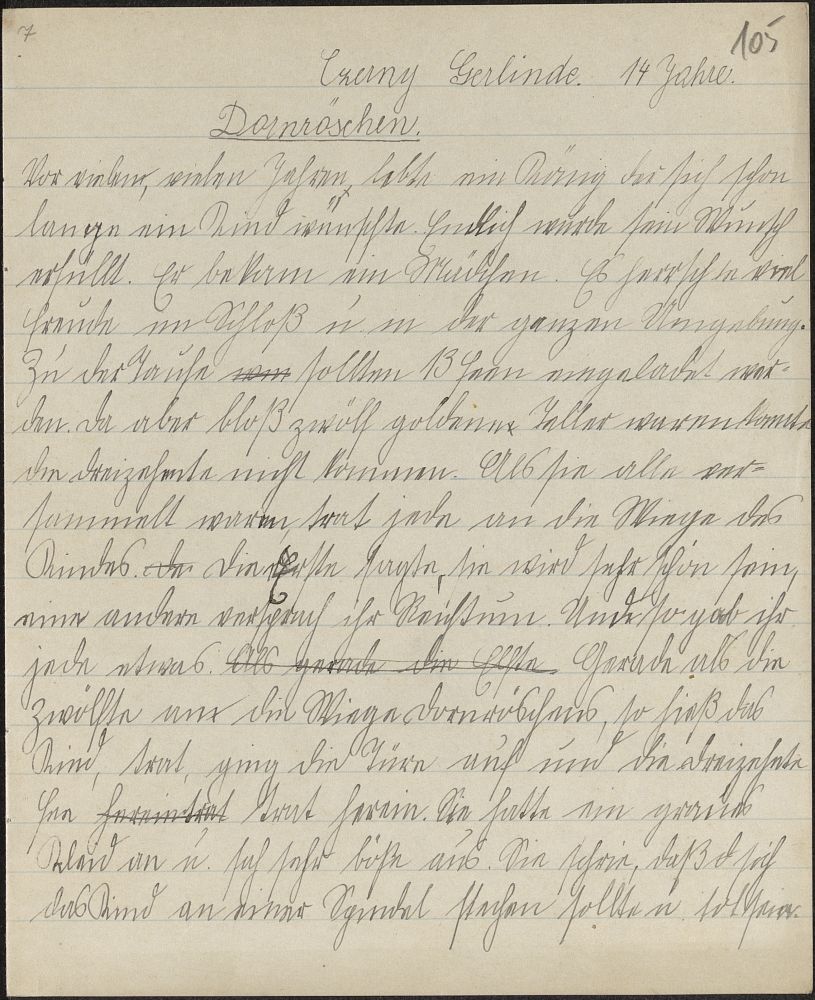 7
105
Czerny Gerlinde. 14 Jahre.
Dornröschen.
Vor vielen, vielen Jahren, lebte ein König der sich schon
lange ein Kind wünschte. Endlich wurde sein Wunsch
erfüllt. Er bekam ein Mädchen. Es herrschte viel
Freude im Schloß u. in der ganzen Umgebung.
Zu der Taufe sollten 13 Feen eingeladet wer-
den. Da aber bloß zwölf goldene Teller waren konnte
die dreizehnte nicht kommen. Als sie alle ver-
sammelt waren, trat jede an die Wiege des
Kindes. Die Erste sagte, sie wird sehr schön sein,
eine andere versprach ihr Reichtum. Und so gab ihr
jede etwas. Als gerade die Elfte. Gerade als die
Zwölfte an die Wiege Dornröschens, so hieß das
Kind, trat, ging die Türe auf und die dreizehnte
Fee hereintrat trat herein. Sie hatte ein graues
Kleid an u. sah sehr böse aus. Sie schrie, daß sich
das Kind an einer Spindel stechen sollte u. tot sein.